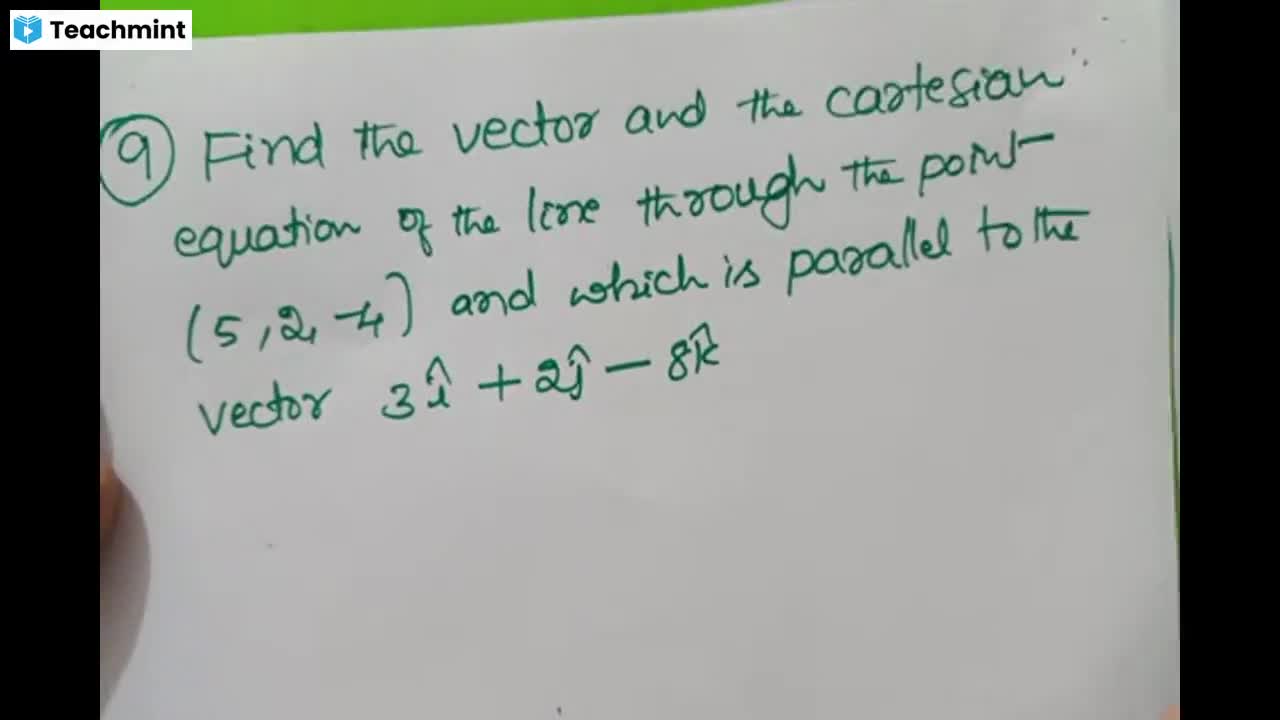 Teachmint
9 Find the vector and the cartesian
equation of the line through the point
(5, 2, -4) and which is parallel to the
vector 3î + 2ĵ - 8k̂